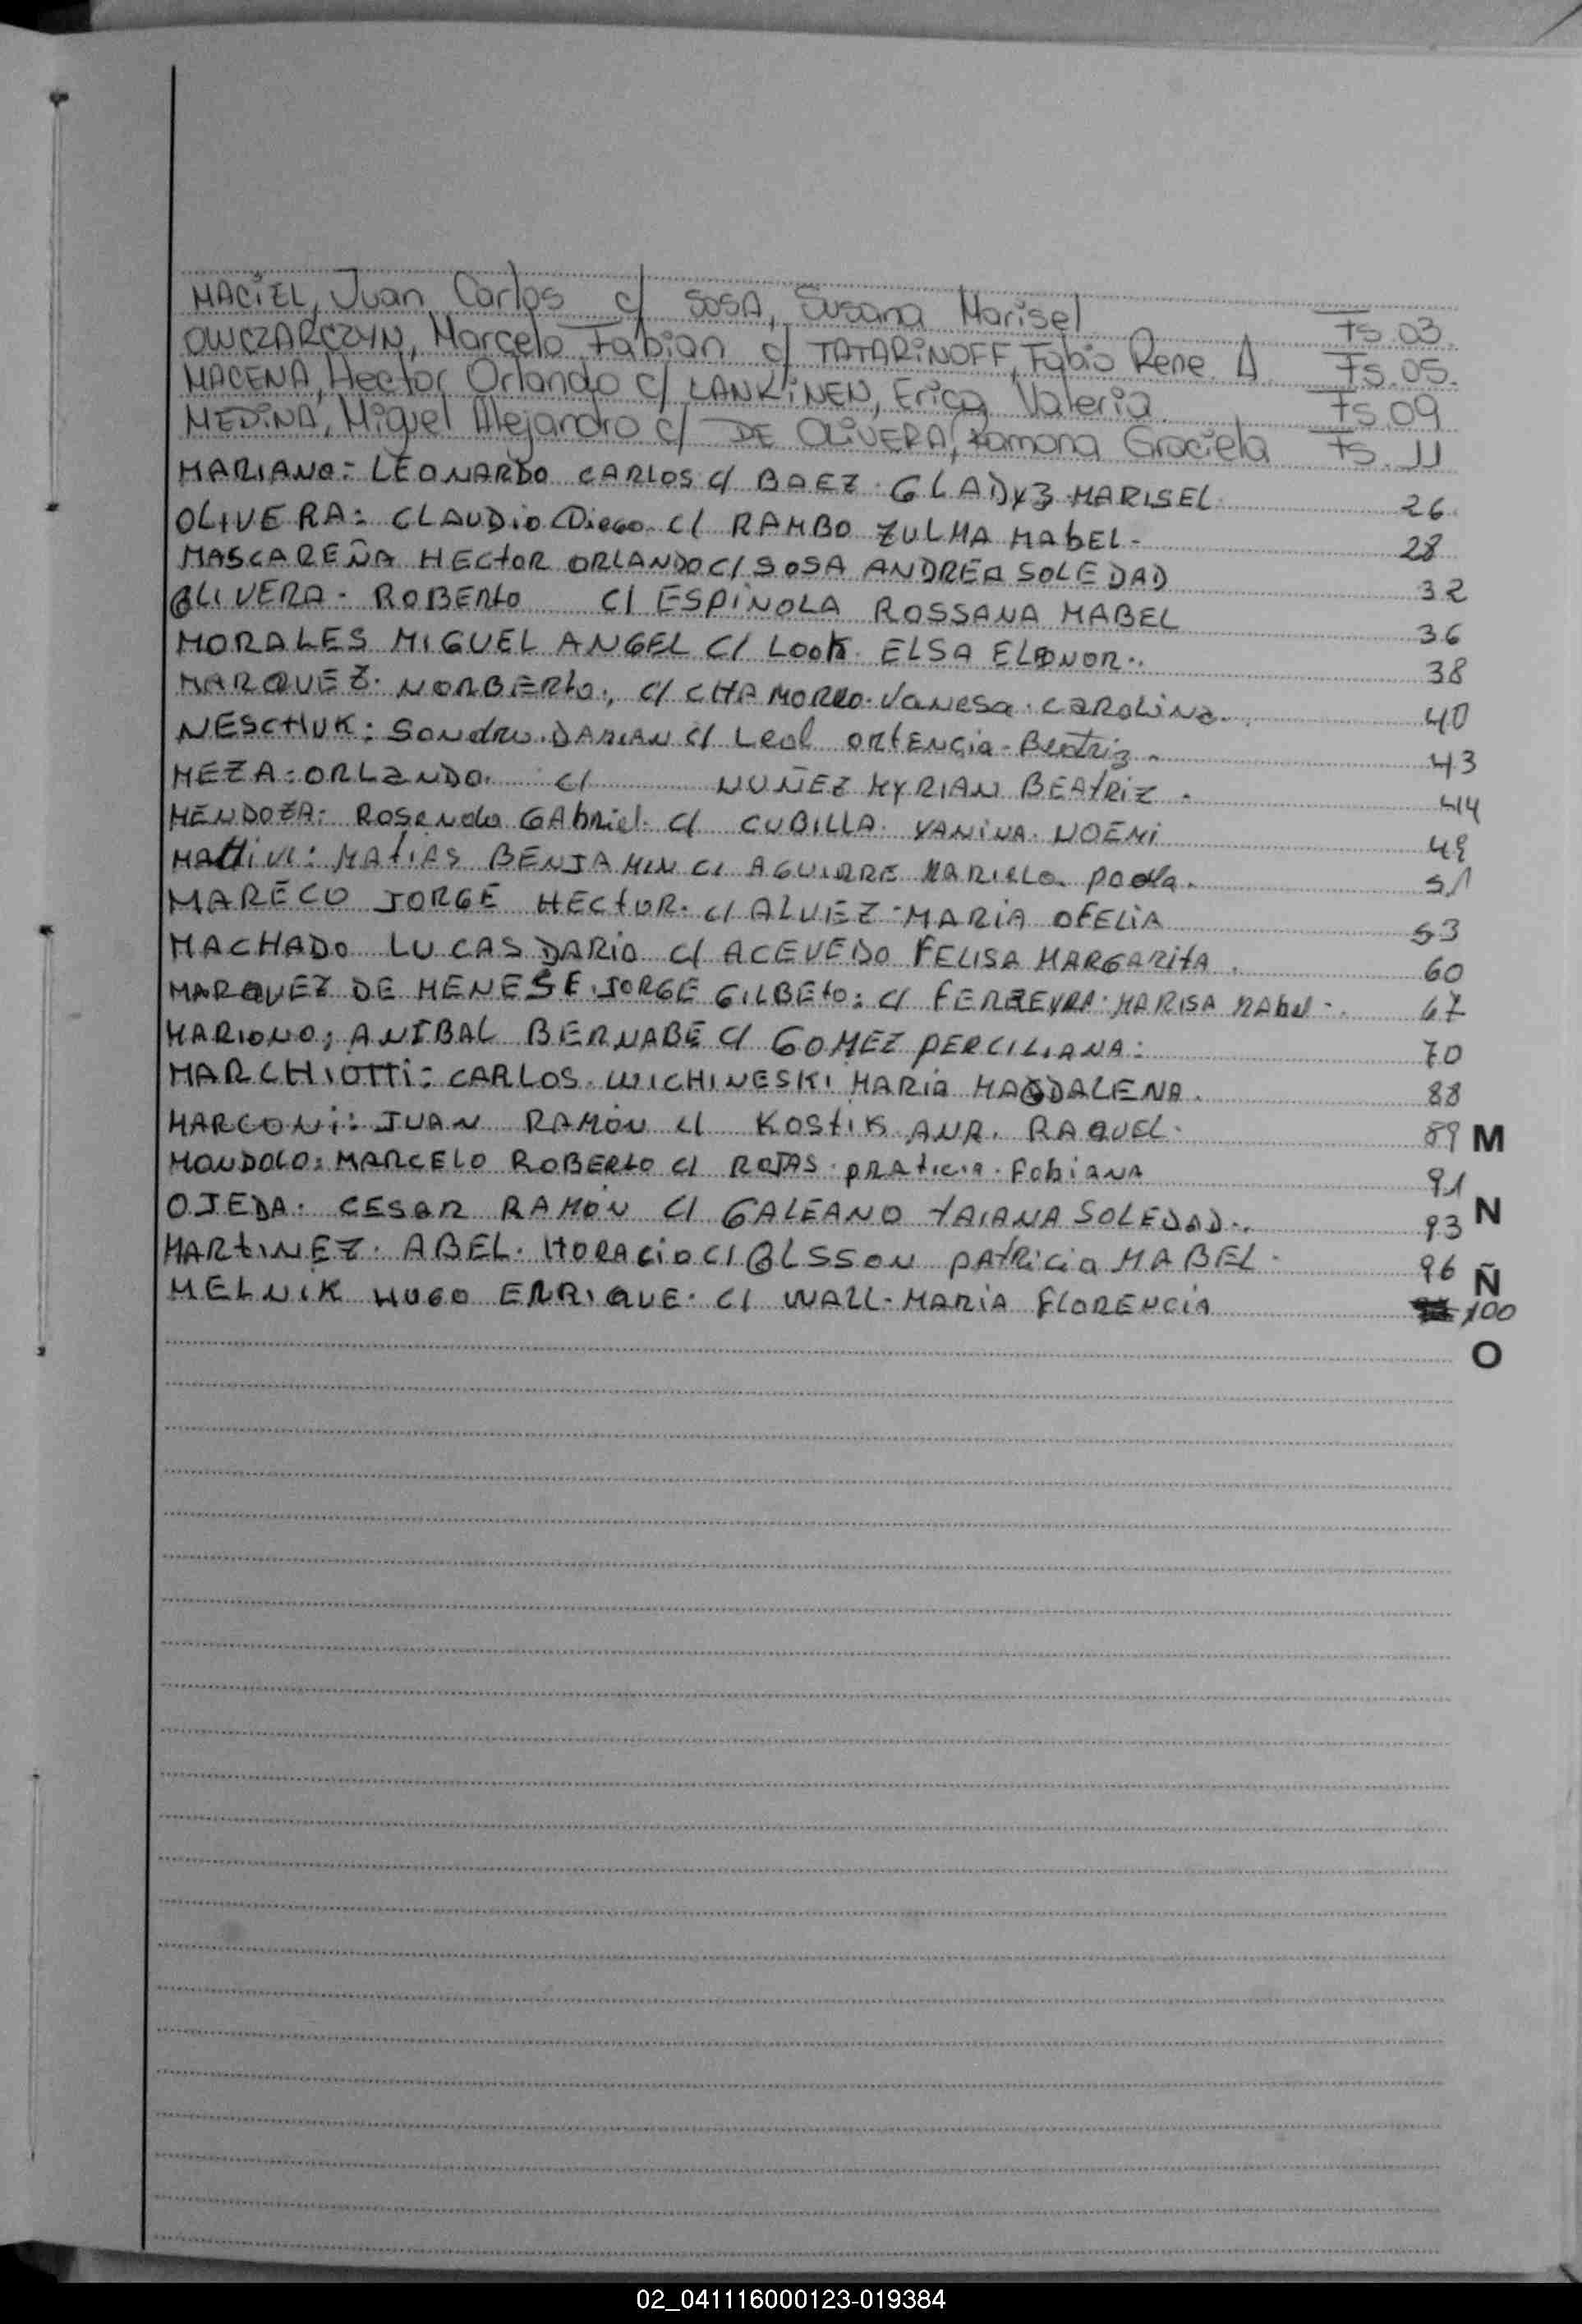 MACIEL, Juan Carlos c/ SOSA, Susana Marisel Fs. 03.
OWCZARCZYN, Marcelo Fabian c/ TATARINOFF, Fabio Rene A. Fs. 05.
MACENA, Hector Orlando c/ LANKINEN, Erica Valeria. Fs. 09
MEDINA, Miguel Alejandro c/ DE OLIVERA, Ramona Graciela Fs. 11
MARIANO: LEONARDO CARLOS c/ BAEZ GLADYZ MARISEL. 26
OLIVERA: CLAUDIO Diego c/ RAMBO ZULMA MABEL- 28
MASCAREÑA HECTOR ORLANDO C/ SOSA ANDREA SOLEDAD 32
OLIVERA- ROBERTO C/ ESPINOLA ROSSANA MABEL 36
MORALES MIGUEL ANGEL C/ LOOK ELSA ELEONOR.. 38
MARQUEZ. NORBERTO., C/ CHAMORRO. VANESA. CAROLINA. 40
NESCHUK: Sandro. DAMIAN C/ Leal ORTENCIA- Beatriz - 43
MEZA: ORLANDO. C/ NUÑEZ MYRIAN BEATRIZ. 44
MENDOZA: Rosendo GABRIEL. C/ CUBILLA. YANINA. NOEMI 49
MATTIVI: MATIAS BENJAMIN C/ AGUIRRE MARIELA PAOLA. 51
MARECO JORGE HECTOR. C/ ALVEZ- MARIA OFELIA 53
MACHADO LUCAS DARIO C/ ACEVEDO FELISA MARGARITA. 60
MARQUEZ DE MENESE. JORGE GILBETO: C/ FERREYRA. MARISA MABEL-. 67
MARIONO; ANIBAL BERNABE C/ GOMEZ PERCILIANA: 70
MARCHIOTTI: CARLOS. WICHINESKI MARIA MAGDALENA. 88
MARCONI: JUAN RAMON C/ KOSTIK ANA. RAQUEL. 89
M
MONDOLO: MARCELO ROBERTO C/ ROJAS. PRATICIA. FABIANA 91
OJEDA. CESAR RAMON C/ GALEANO TAIANA SOLEDAD.. 93
N
MARTINEZ. ABEL. HORACIO C/ OLSSON PATRICIA MABEL. 96
Ñ
MELNIK HUGO ENRIQUE. C/ WALL- MARIA FLORENCIA 100
O
02_041116000123-019384